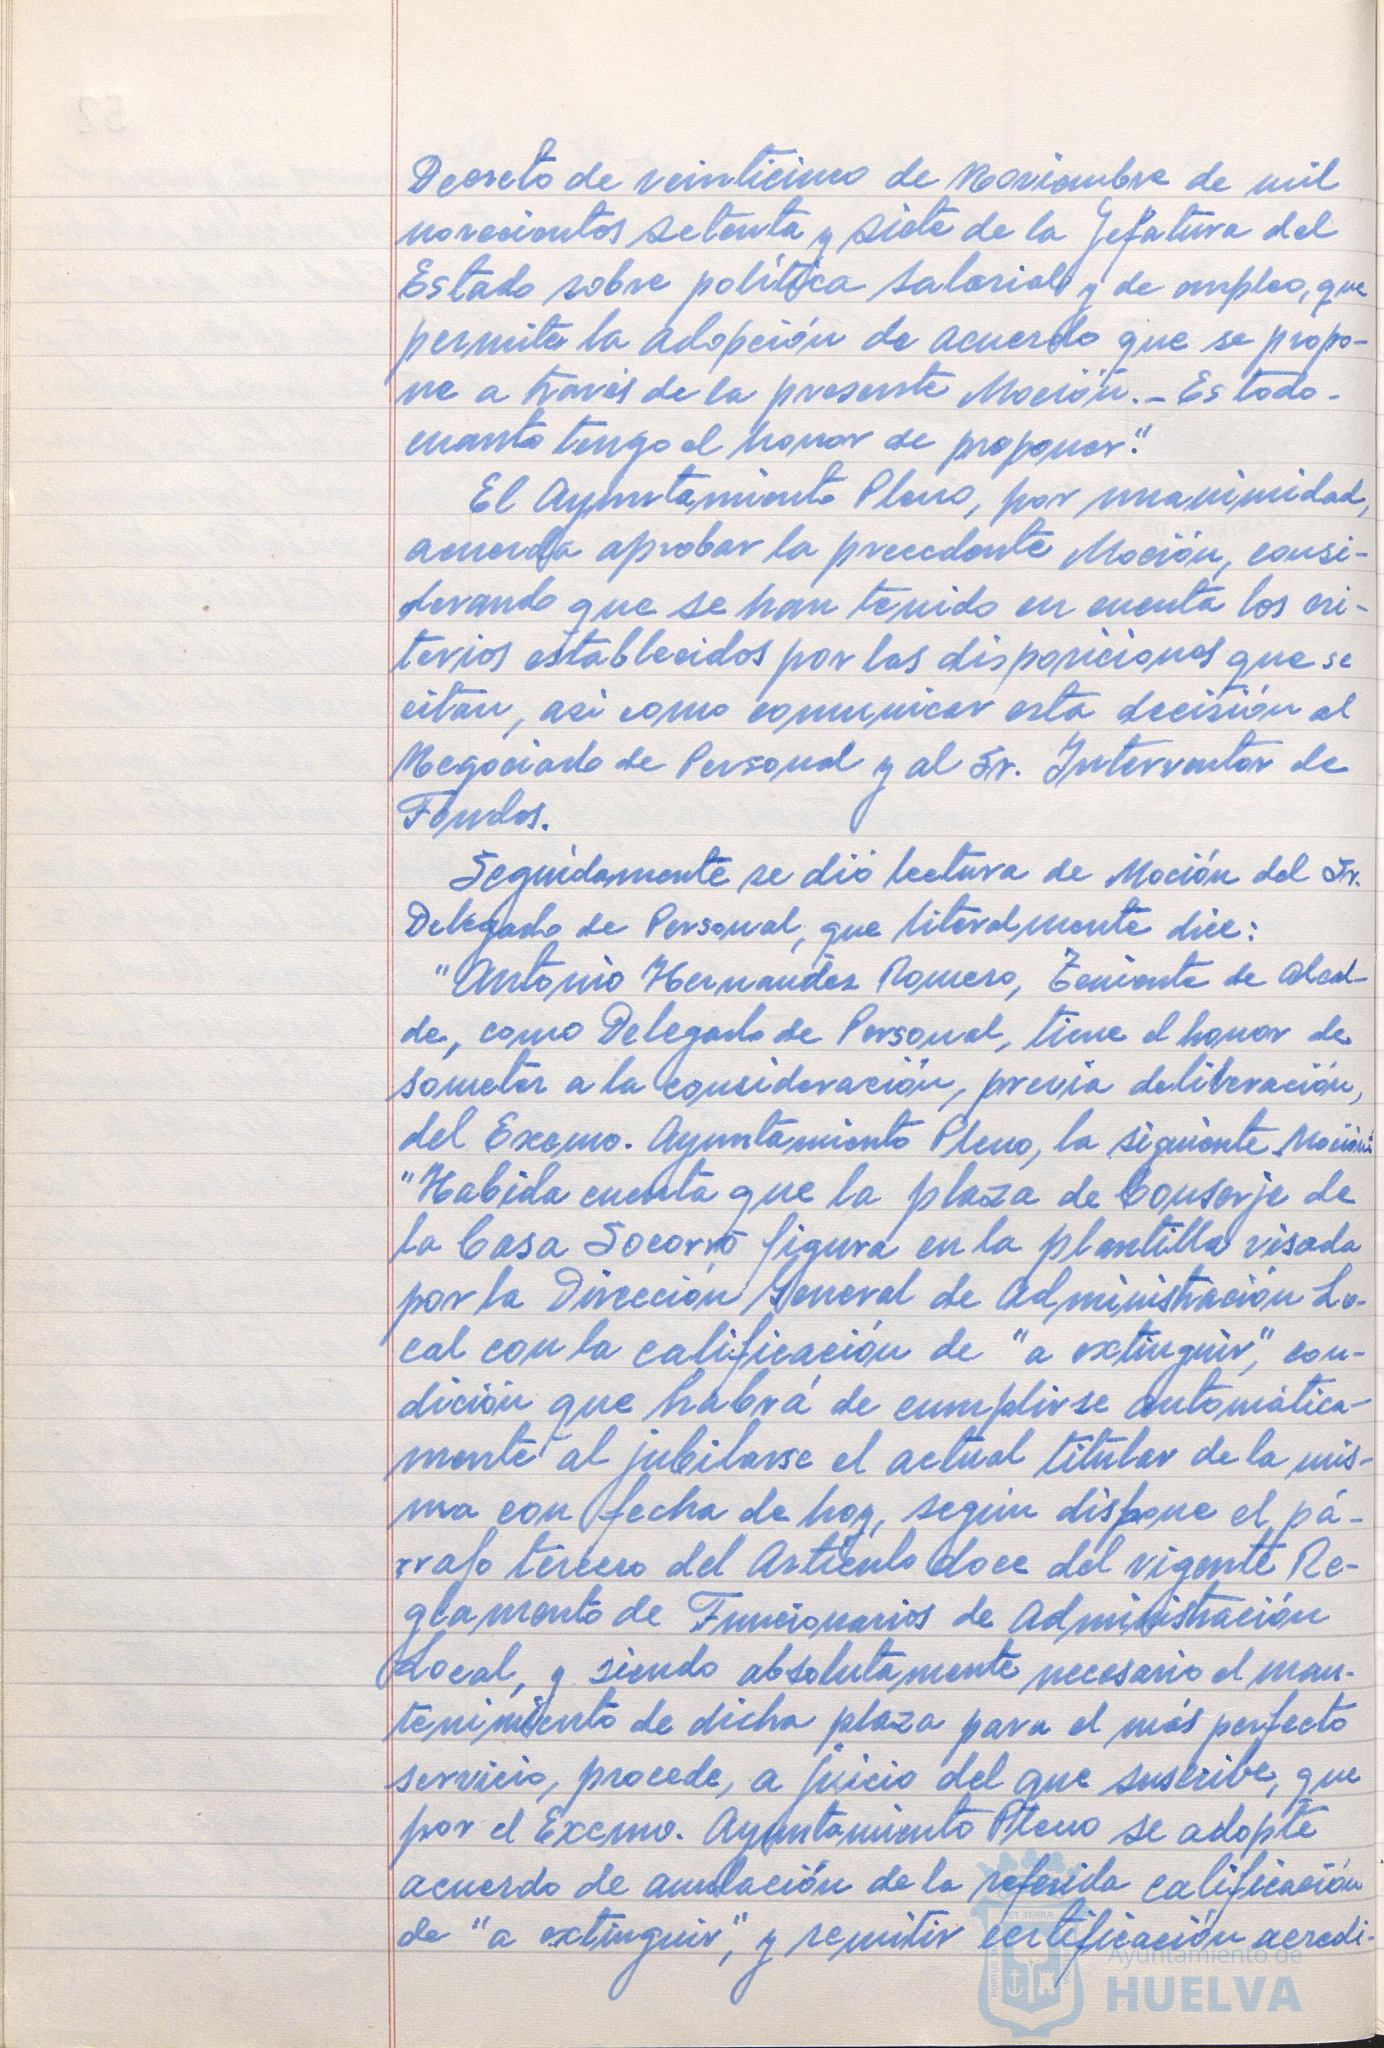 Decreto de veinticinco de Noviembre de mil
novecientos setenta y siete de la Jefatura del
Estado sobre política salarial y de empleo, que
permite la adopción de acuerdo que se propo-
ne a través de la presente Moción.- Es todo-
cuanto tengo el honor de proponer".
El Ayuntamiento Pleno, por unanimidad,
acuerda aprobar la precedente Moción, consi-
derando que se han tenido en cuenta los cri-
terios establecidos por las disposiciones que se
citan, asi como comunicar esta decisión al
Negociado de Personal y al Sr. Interventor de
Fondos.
Seguidamente se dió lectura de Moción del Sr.
Delegado de Personal, que literalmente dice:
"Antonio Hernandez Romero, Teniente de Alcal-
de, como Delegado de Personal, tiene el honor de
someter a la consideración, previa deliberación,
del Excmo. Ayuntamiento Pleno, la siguiente Moción:
"Habida cuenta que la plaza de Conserje de
la Casa Socorro figura en la plantilla visada
por la Dirección General de Administración Lo-
cal con la calificación de "a extinguir", con-
dición que habrá de cumplirse automática-
mente al jubilarse el actual titular de la mis-
ma con fecha de hoy, según dispone el pá-
rrafo tercero del Artículo doce del vigente Re-
glamento de Funcionarios de Administración
Local, y siendo absolutamente necesario el man-
tenimiento de dicha plaza para el más perfecto
servicio, procede, a juicio del que suscribe, que
por el Excmo. Ayuntamiento Pleno se adopte
acuerdo de anulación de la referida calificación
de "a extinguir", y remitir certificación acredi-
Ayuntamiento de
HUELVA